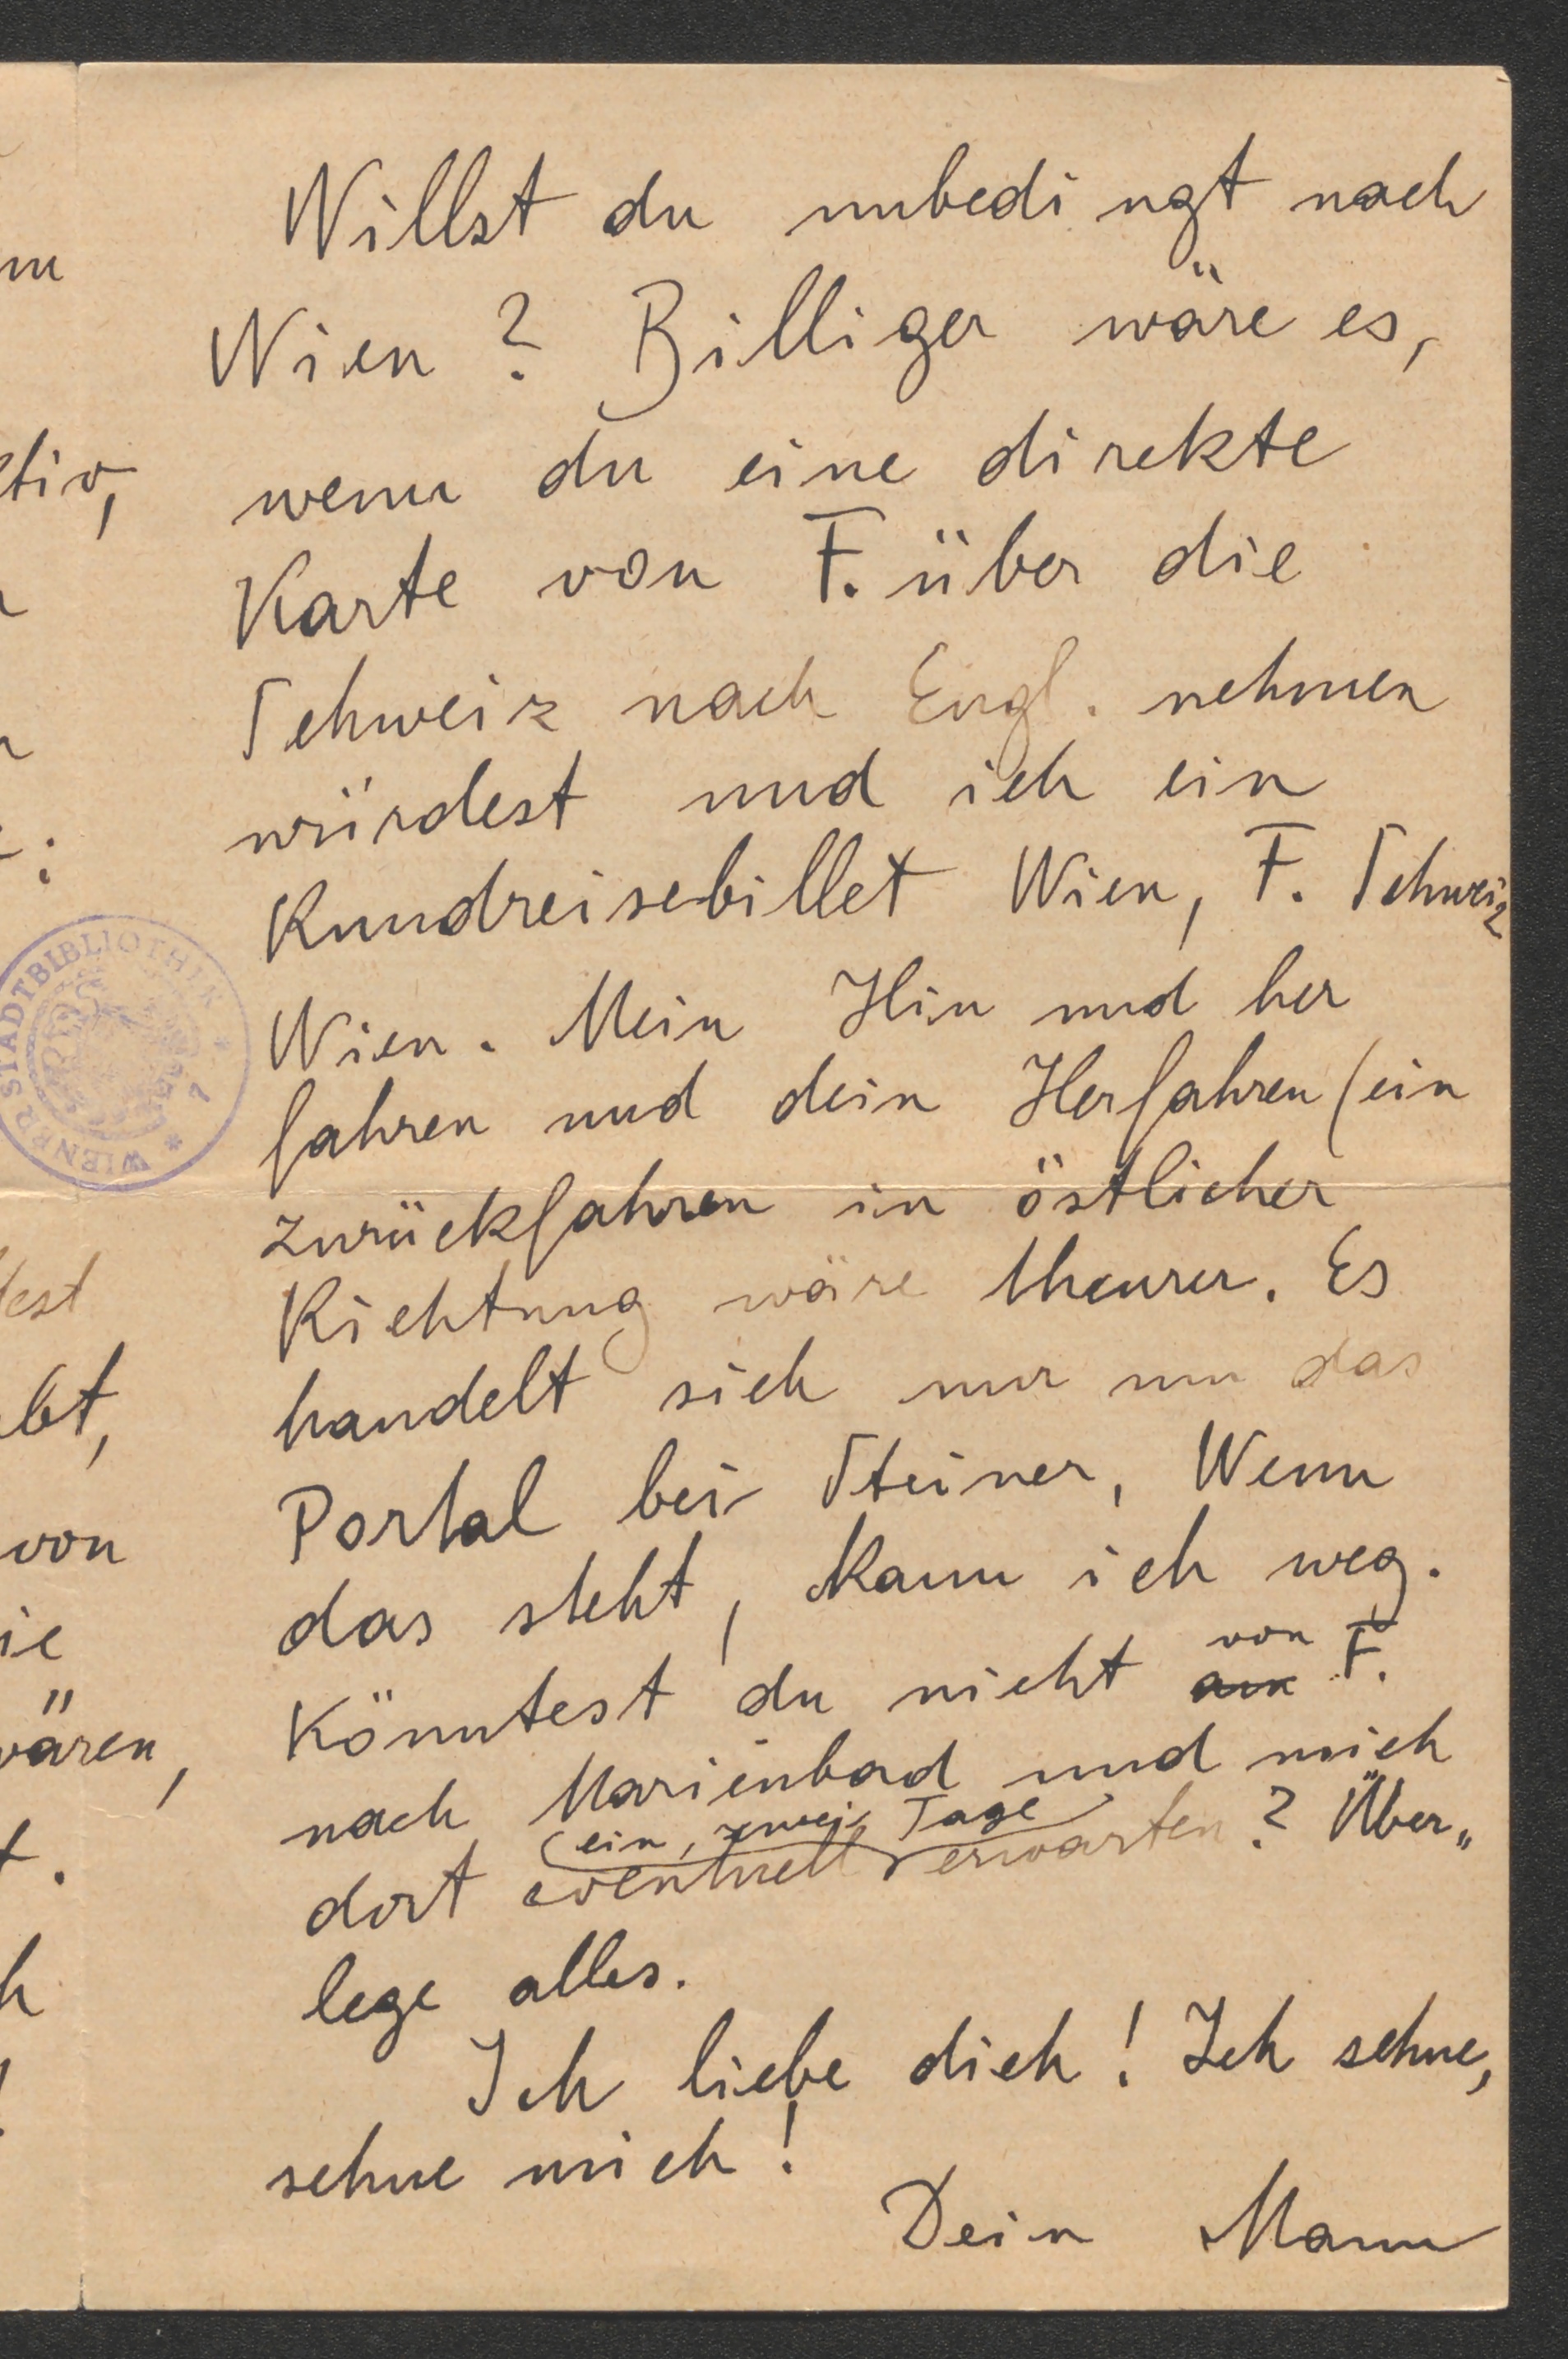 Willst du unbedingt nach
Wien? Billiger wäre es,
wenn du eine direkte
Karte von F. über die
Schweiz nach Engl. nehmen
würdest und ich ein
Rundreisebillet Wien, F. Schweiz
Wien. Mein Hin und her
fahren und dein Herfahren (ein
zurückfahren in östlicher
Richtung wäre theurer. Es
handelt sich nur um das
Portal bei Steiner, Wenn
das steht, kann ich weg.
Könntest du nicht aus von F.
nach Marienbad und mich
dort eventuell (ein, zwei Tage) erwarten? Über„
lege alles.
Ich liebe dich! Ich sehne,
sehne mich!
Dein Mann
WIENER STADTBIBLIOTHEK
ktiv,
dest
bt,
von
ie
wären,